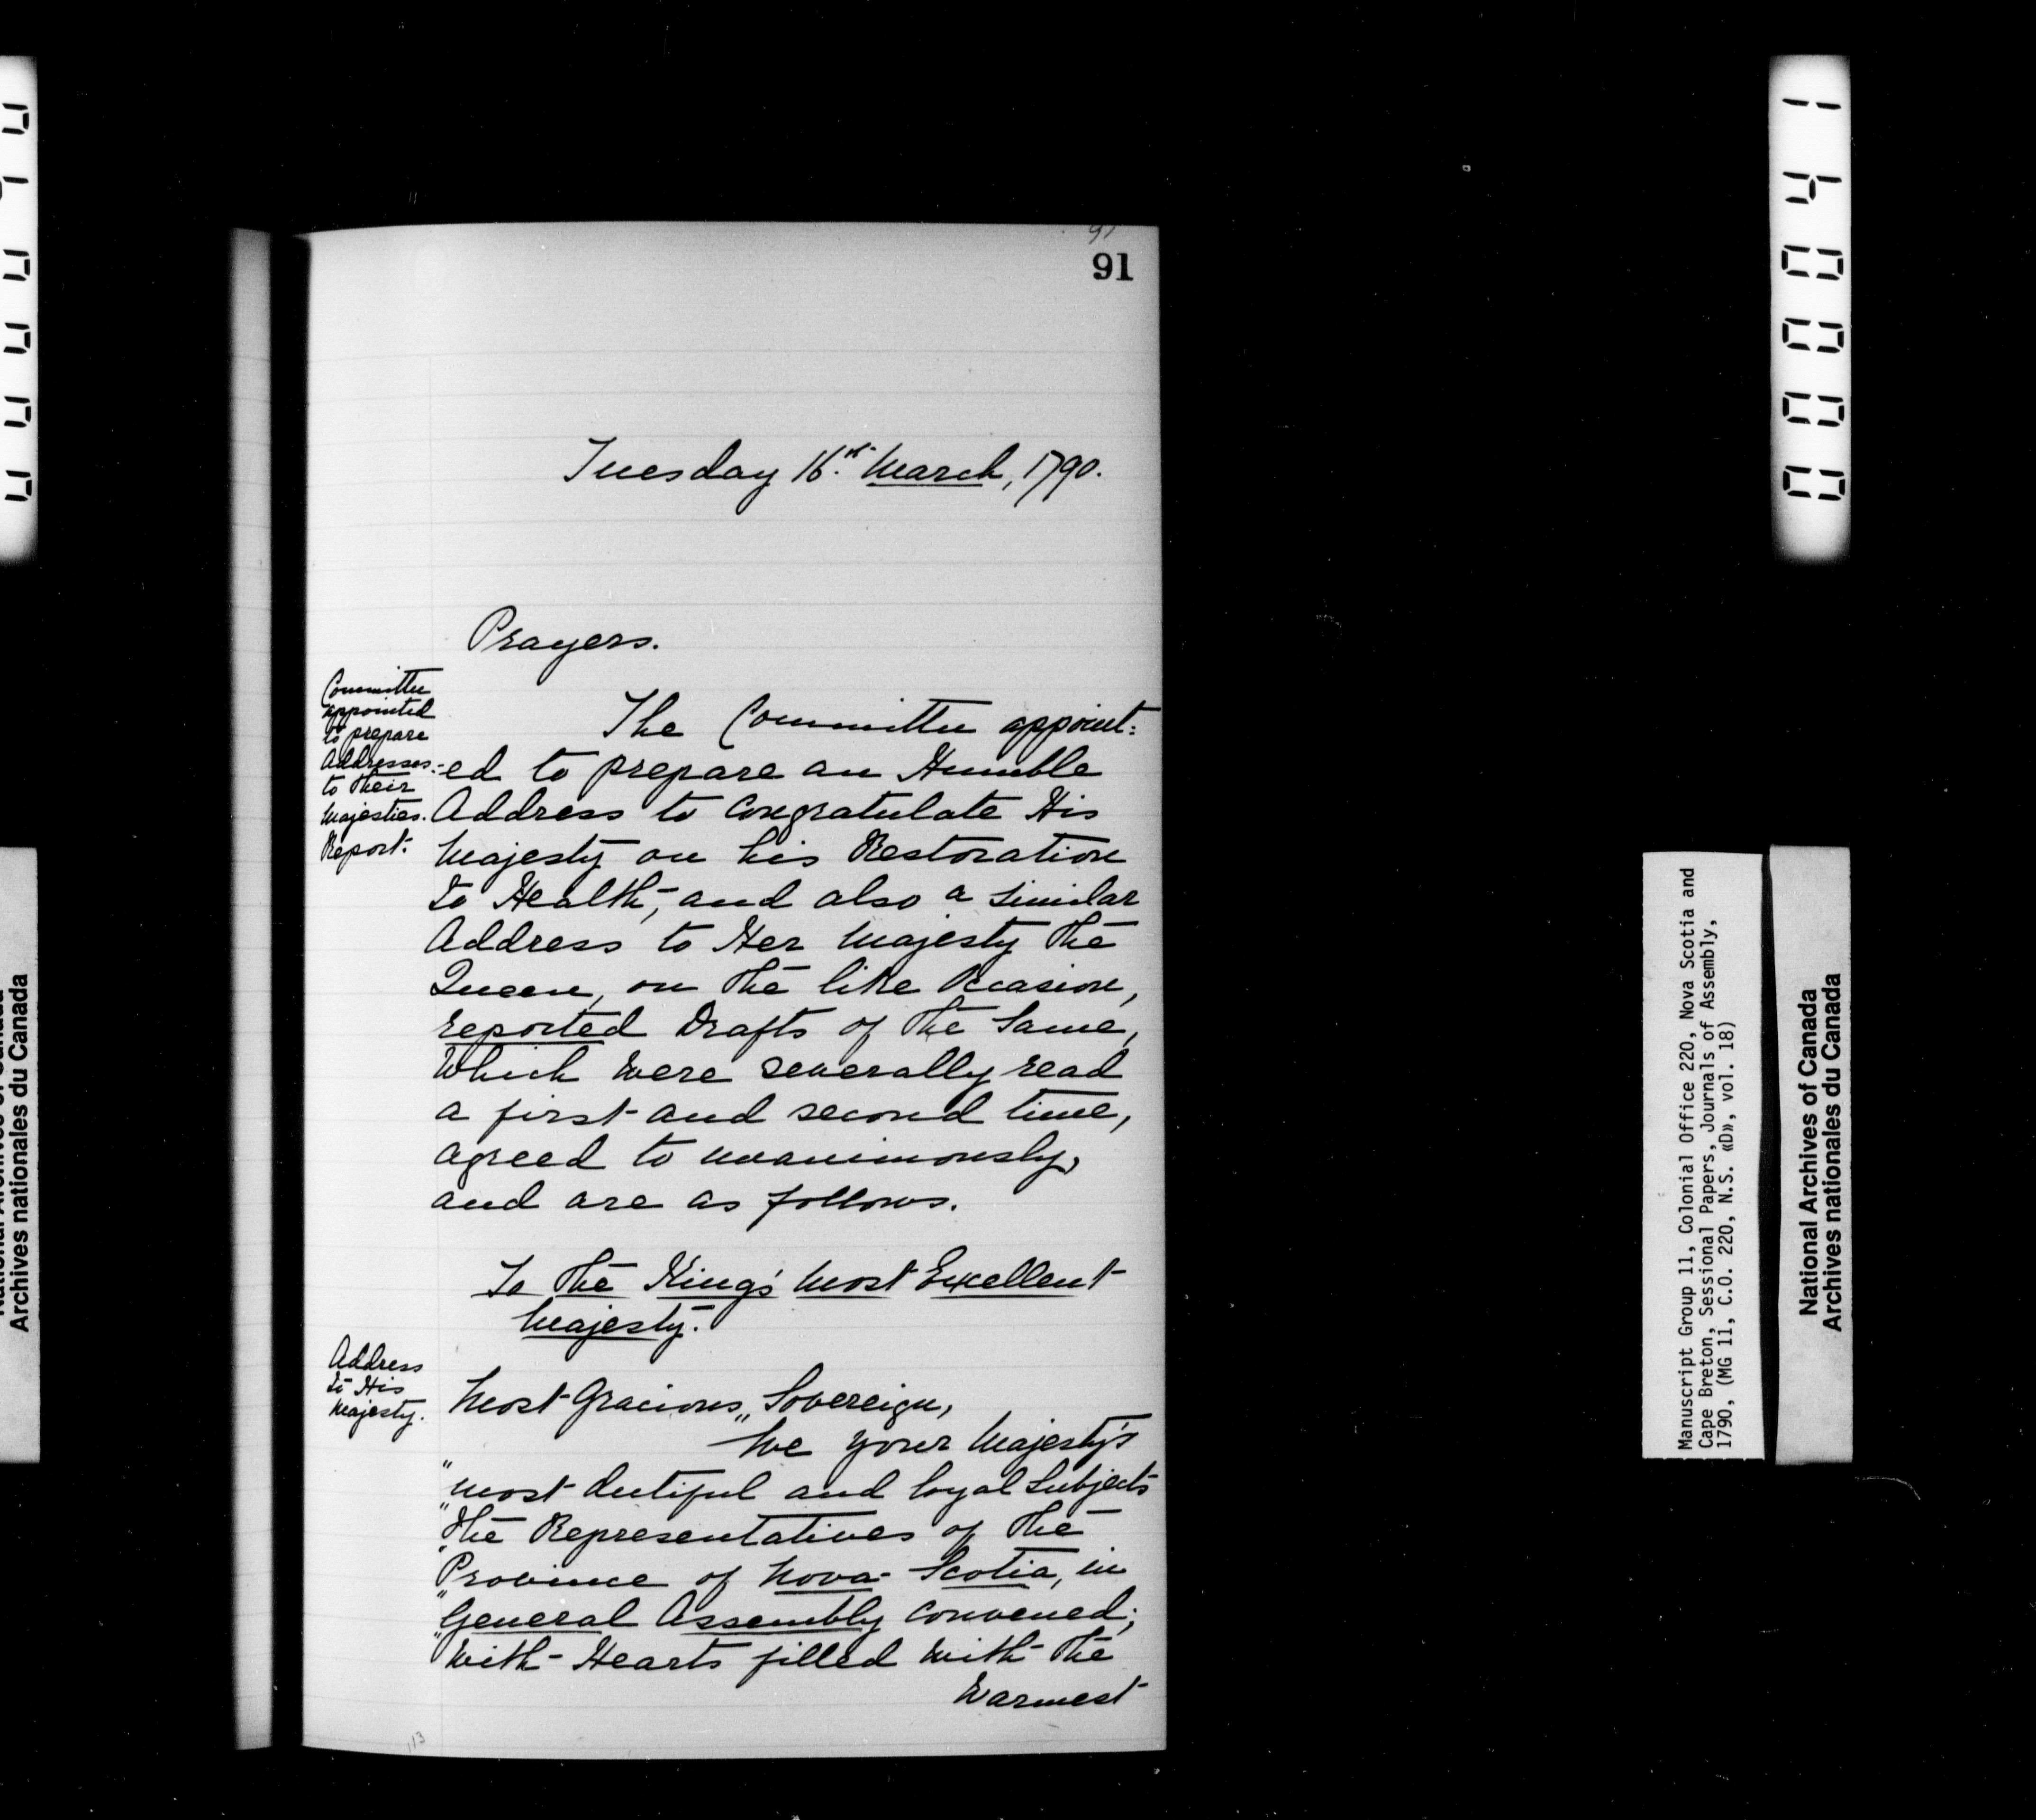 91
91
Tuesday 16.th March, 1790.
Prayers.
Committee
appointed
to prepare
Addresses
to their
Majesties.
Report.
The Committee appoint:
-ed to prepare an Humble
Address to Congratulate His
Majesty on his Restoration
to Health, and also a similar
Address to Her Majesty the
Queen, on the like Occasion,
reported Drafts of the Same,
Which were severally read
a first and second time,
agreed to unanimously,
and are as follows.
To the King's Most Excellent
Majesty.
Address
to His
Majesty.
Most Gracious Sovereign,
"We your Majesty's
"most dutiful and loyal Subjects
"the Representatives of the
"Province of Nova Scotia, in
"General Assembly convened;
"With Hearts filled with the
Warmest
113
Manuscript Group 11, Colonial Office 220, Nova Scotia and
Cape Breton, Sessional Papers, Journals of Assembly,
1790, (MG 11, C.O. 220, N.S. «D», vol. 18)
National Archives of Canada
Archives nationales du Canada
Archives nationales du Canada